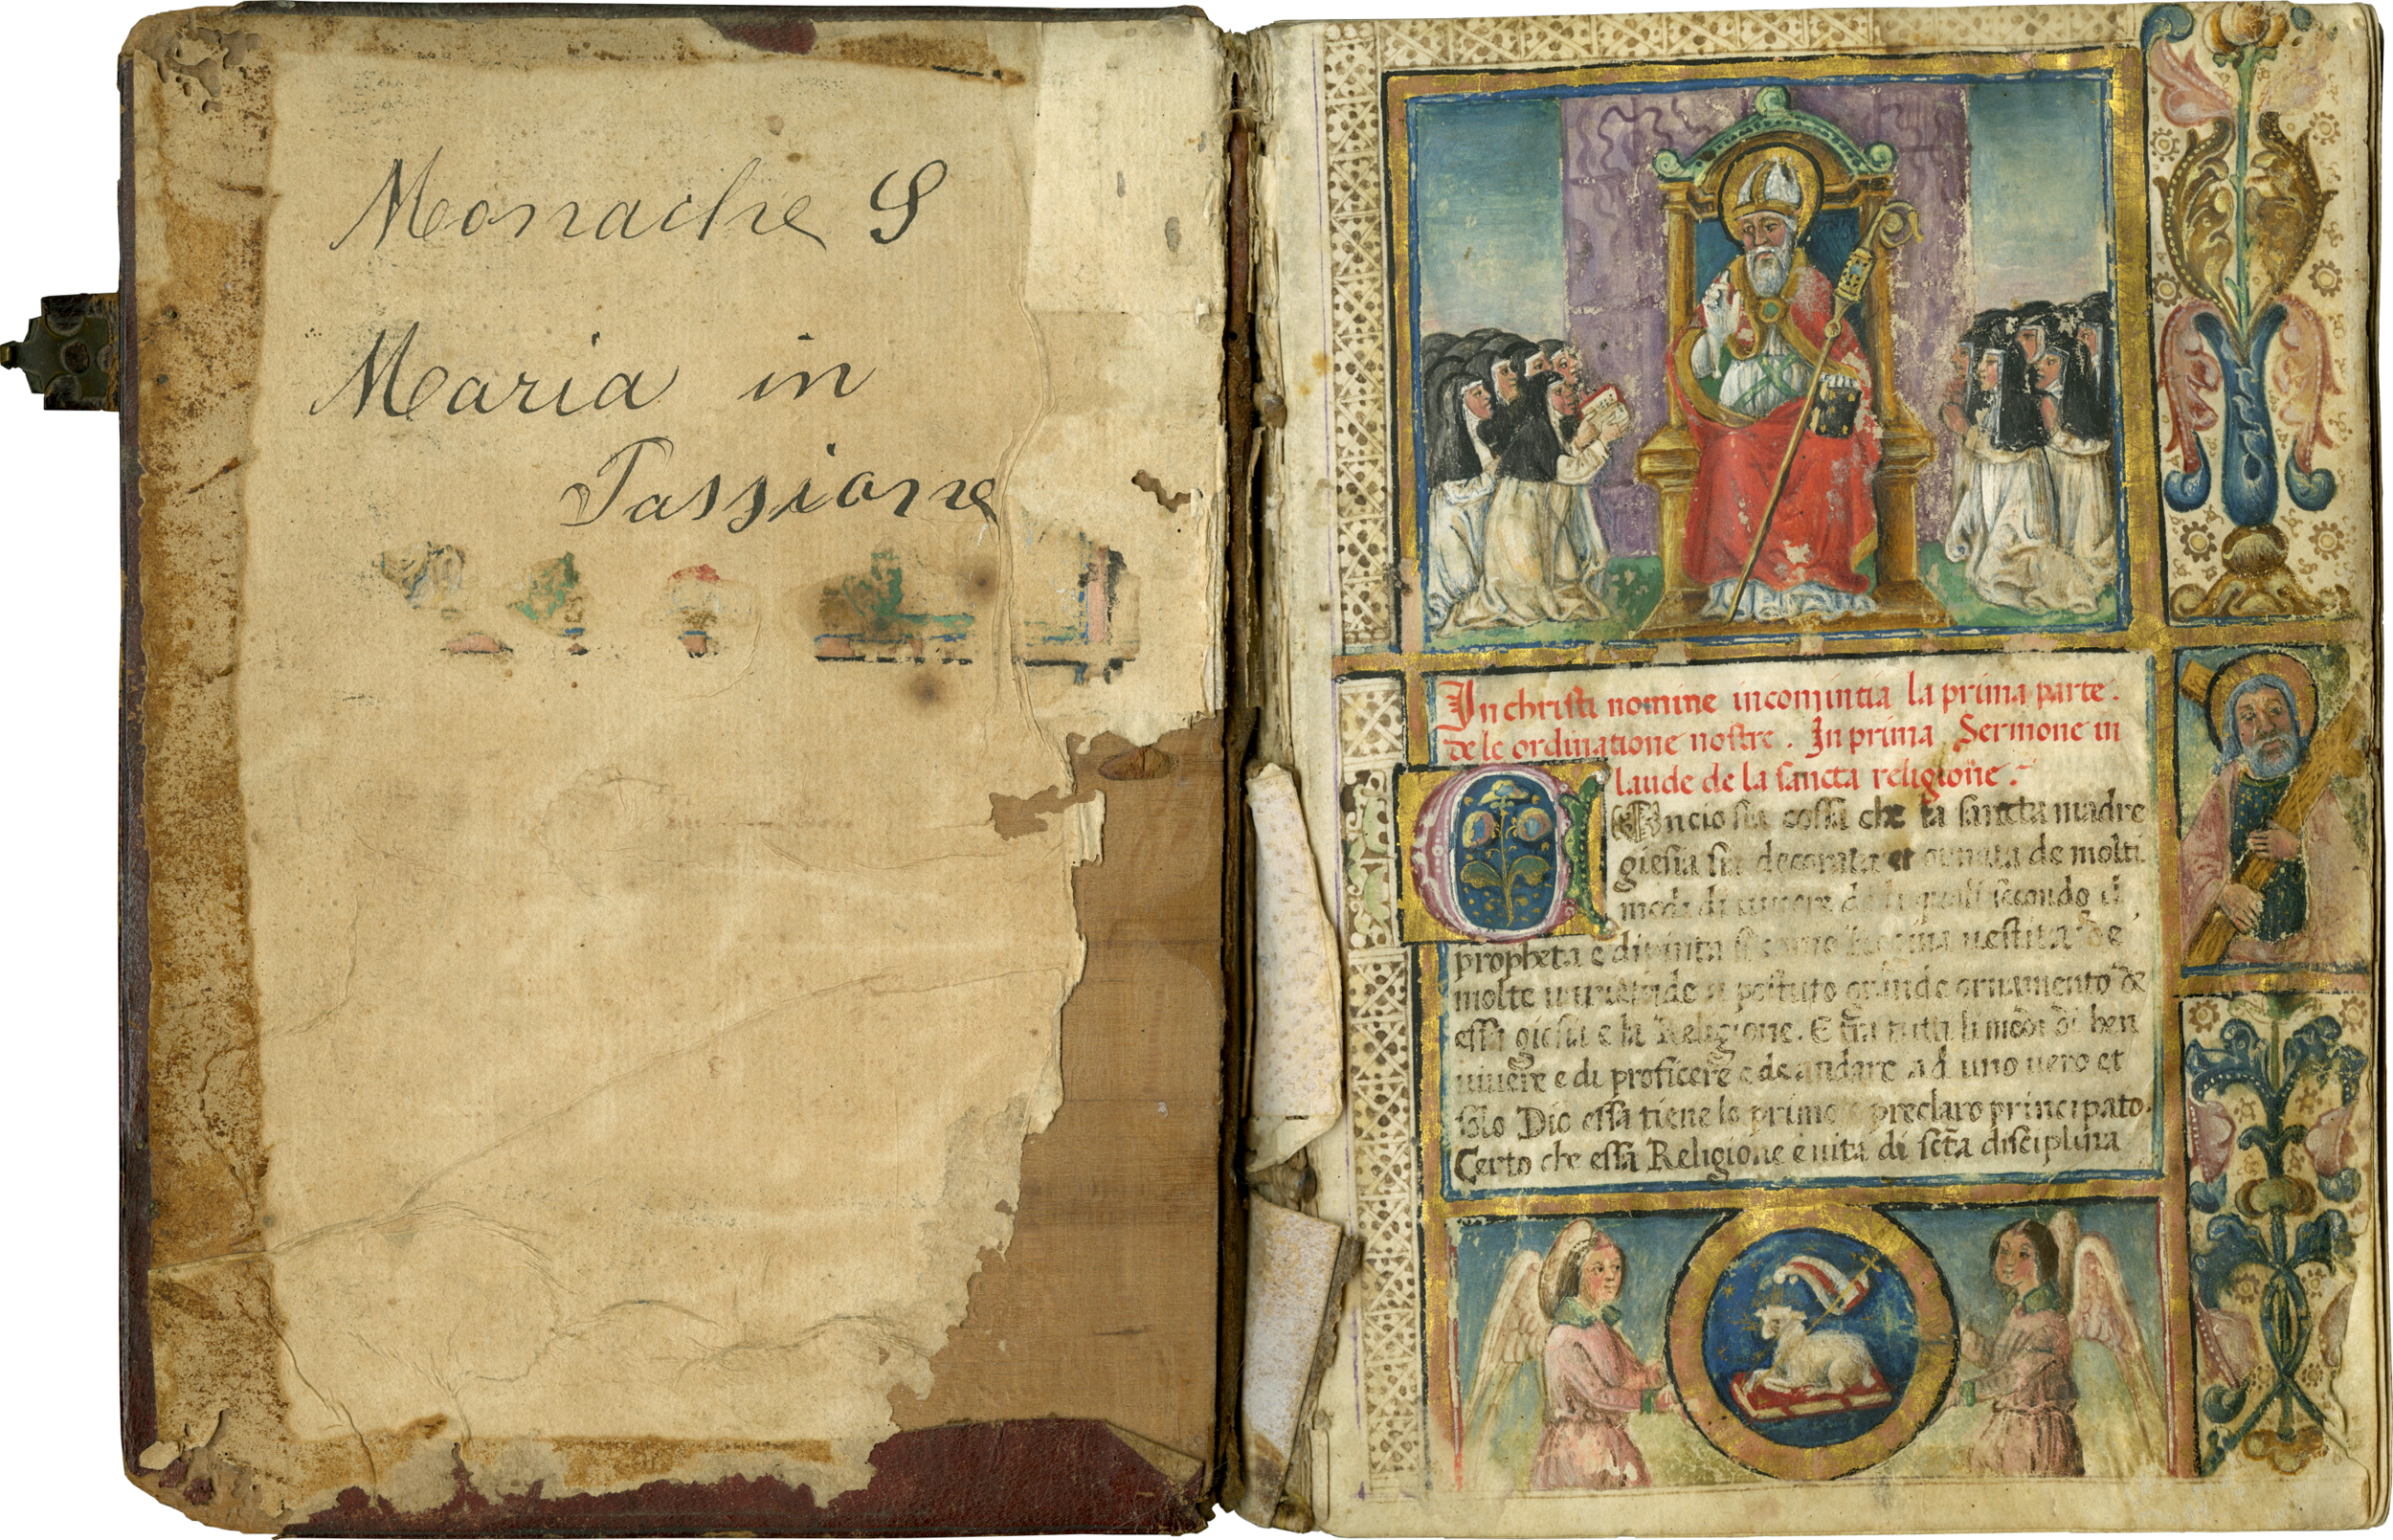 Monache S
Maria in
Passione
In christi nomine incomintia la prima parte.
de le ordinatione nostre. In prima Sermone in
laude de la sancta religione.
COncio sia cossa che la sancta madre
giesia sia decorata et ornata de molti
modi di vivere de li quali secondo il
propheta e dipinta si como Regina uestita de
molte uarietade a postuto grande ornamento de
essa giesia e la Religione. E tra tutti li modi di ben
uiuere e di proficere e de andare ad uno uero et
solo Dio essa tiene lo primo e preclaro principato.
Certo che essa Religione e uita di scta disciplina